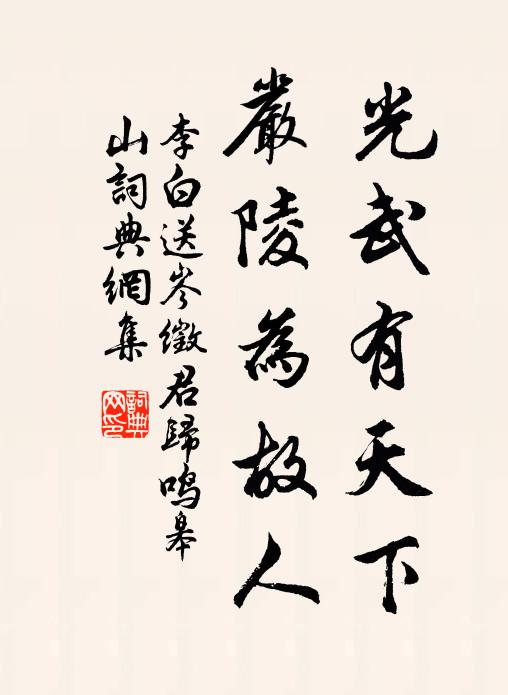 光武有天下
嚴陵為故人
李白送岑徵君歸鳴皋
山詞典網集
詞典
网印